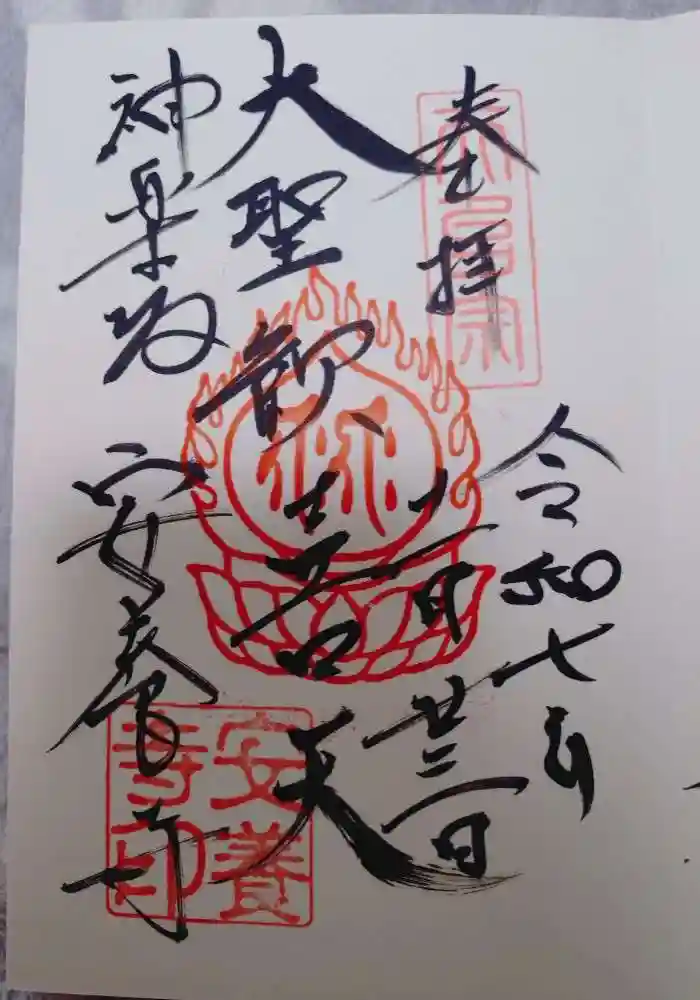 奉拝
天台宗
令和七年
十一月廿三日
大聖歓喜天
神楽坂
安養寺
安養
寺印